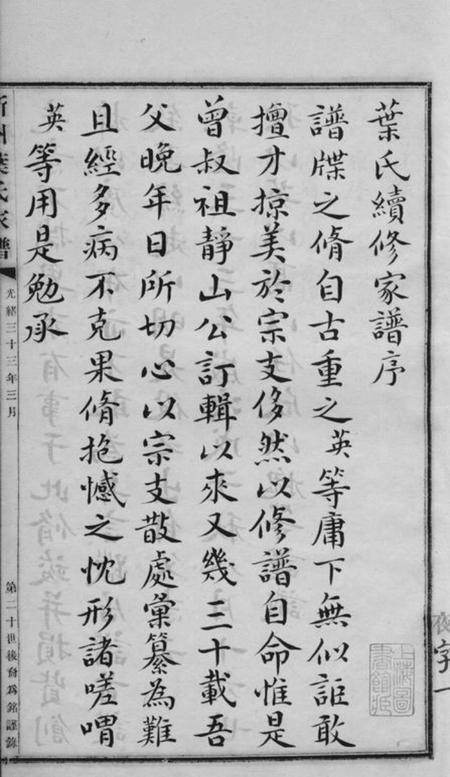 葉氏續修家譜序
譜牒之脩自古重之英等庸下無似詎敢
擅才掠美於宗支侈然以修譜自命惟是
曾叔祖靜山公訂輯以來又幾三十載吾
父晚年日所切心以宗支散處彙纂為難
且經多病不克果脩抱憾之忱形諸嗟喟
英等用是勉承
州葉氏家譜
光緒三十三年三月
第二十世後裔為銘謹錄
上海圖書館藏